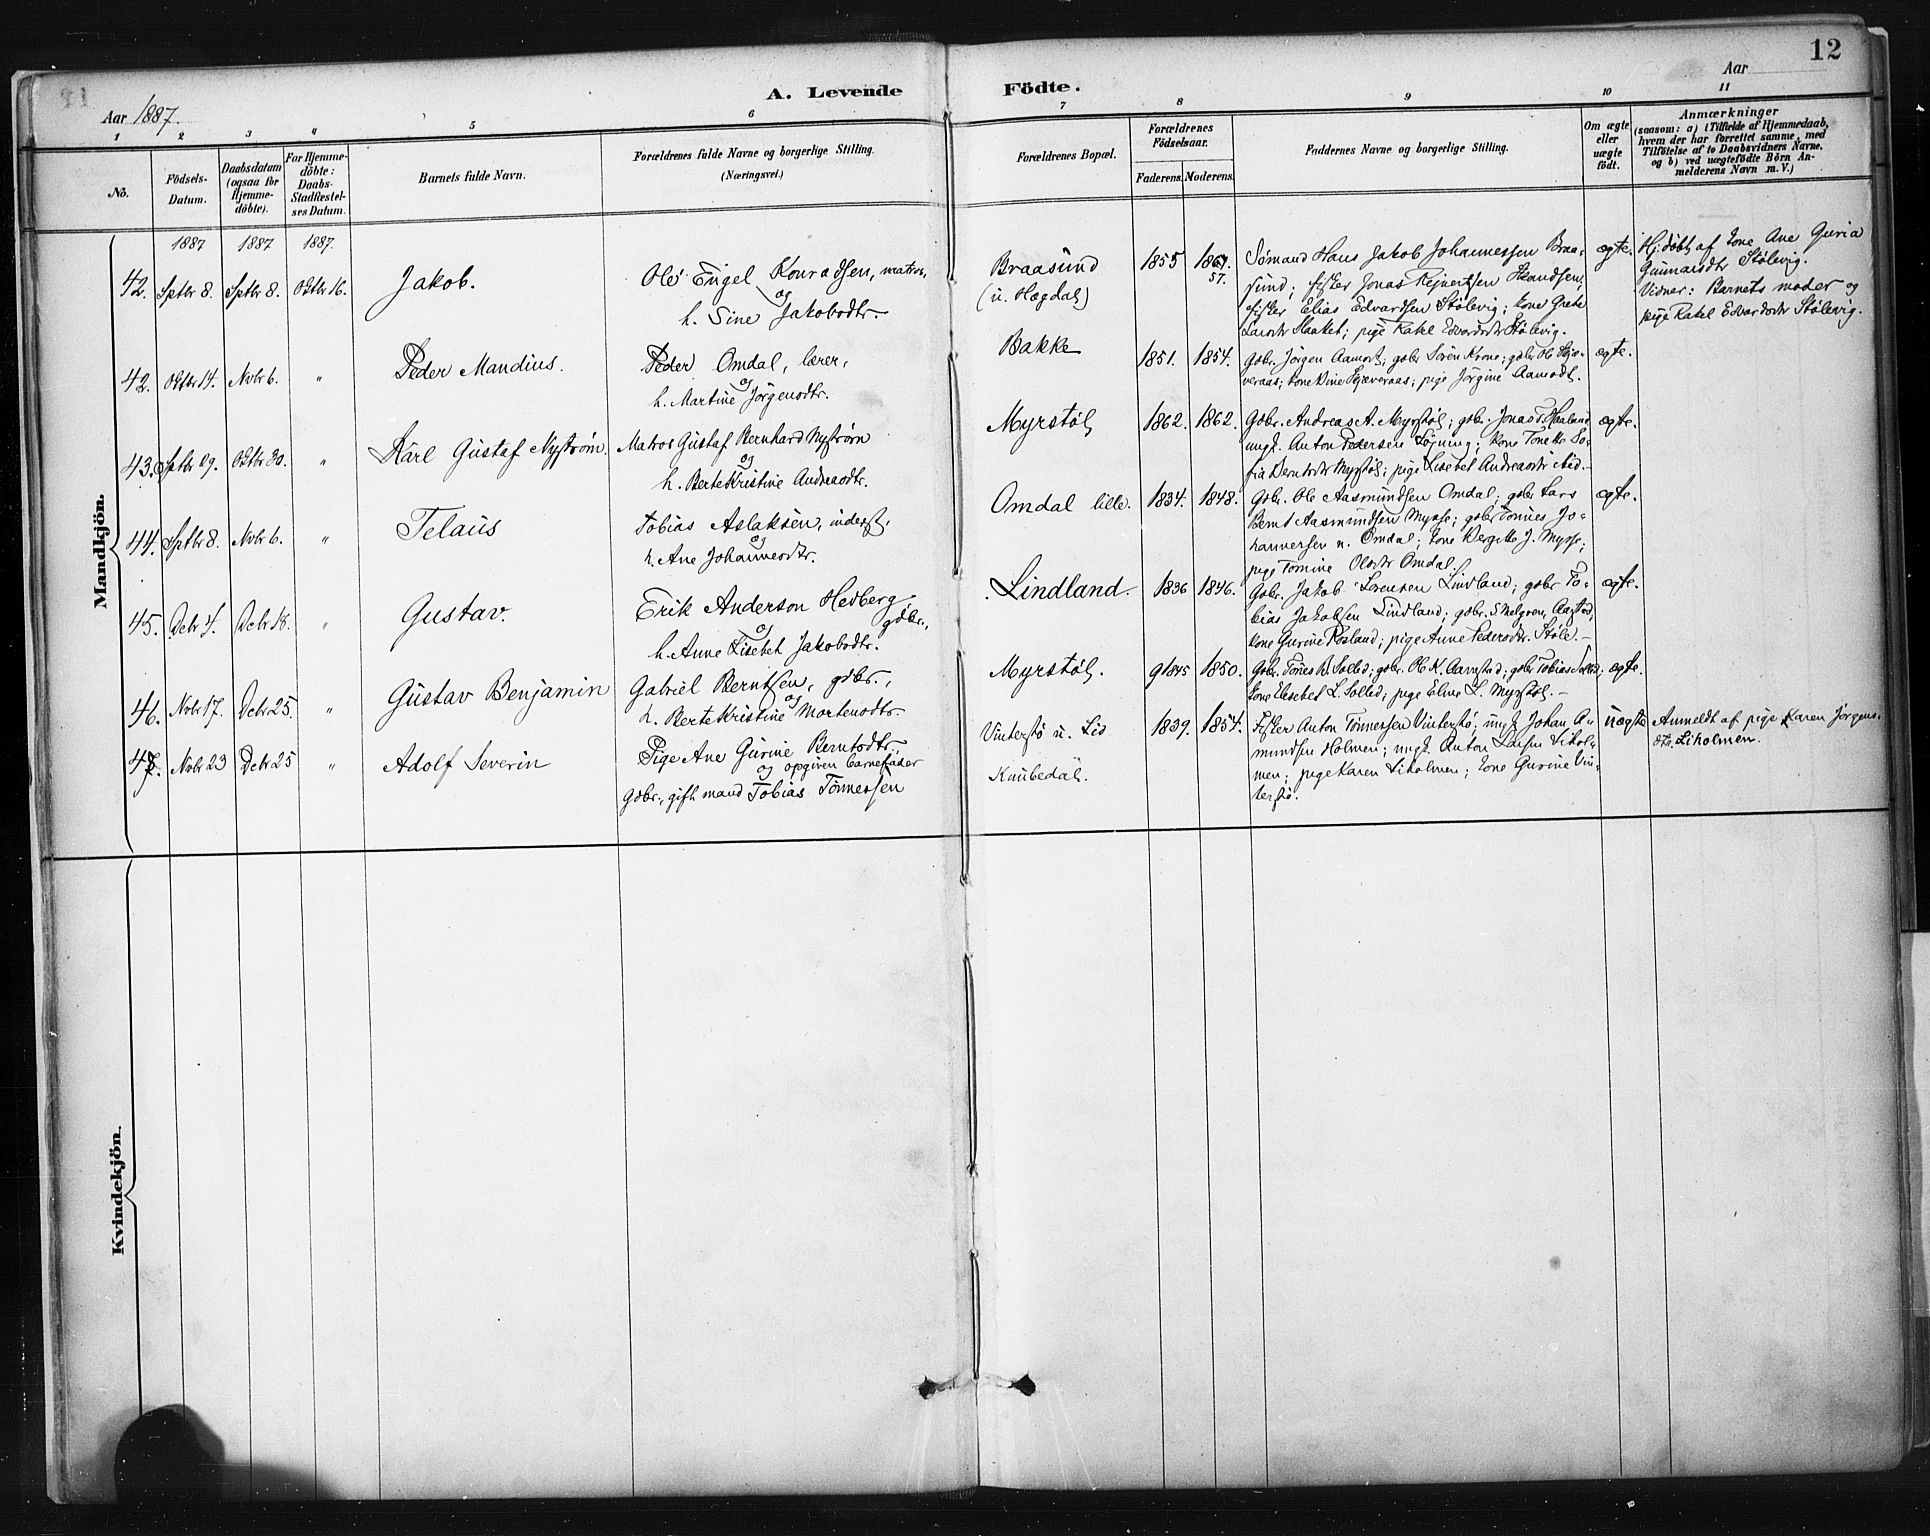 12
Aar 1887.
A. Levende Födte.
Aar
1 2 3 4 5 6 7 8 9 10 11
No.
Födsels-Datum.
Daabsdatum (ogsaa for Hjemmedöbte).
For Hjemmedöbte: Daabs-Stadfæstelses Datum.
Barnets fulde Navn.
Forældrenes fulde Navne og borgerlige Stilling.
(Næringsvei.)
Forældrenes Bopæl.
Forældrenes Födselsaar.
Faderens. Moderens.
Faddernes Navne og borgerlige Stilling.
Om ægte eller uægte födt.
Anmærkninger
(saasom: a) i Tilfælde af Hjemmedaab,
hvem der har forrettet samme, med
Tilföielse af to Daabsvidners Navne,
og b) ved uægtefödte Börn An-
melderens Navn m. V.)
Mandkjön.
1887 1887 1887.
42. Sptbr 8. Sptbr 8. Oktbr 16. Jakob.
Ole Engel Konradsen, matros,
og
h. Sine Jakobsdtr.
Braasund
(u. Hægdal)
1855 1857.
57.
Sømand Hans Jakob Johannessen Braa-
sund; fisker Jonas Rejnertsen
fisker Elias Edvardsen Stölevig; kone Grete
pige Rakel Edvardsdtr Stölevig.
ægte.
Hj.döbt af kone Ane Guria
Gunnarsdtr Stölevig.
Vidner: Barnets moder og
pige Rakel Edvardsdtr Stölevig.
42. Oktbr 14. Nvbr 6. " Peder Mandius.
Peder Omdal, lærer,
og
h. Martine Jörgensdtr.
Bakke
1851. 1854.
Gbr. Jörgen Aamodt; gbr Sören Krone; gbr Ole
veraas; kone Sine veraas; pige Jörgine Aamodt.
ægte.
43. Sptbr 29. Oktbr 30. " Karl Gustaf Nyström.
Matros Gustaf Bernhard Nyström
og
h. Berte Kristine Andreasdtr.
Myrstöl
1862. 1862.
Gbr. Andreas A. Myrstöl; gbr. Jonas T.
ungk. Anton Pedersen Löjning; kone Tone So-
fia Berntsdtr Myrstöl; pige Lisebet Andreasdtr ibid.
ægte.
44. Sptbr 8. Nvbr 6. " Telaus
Tobias Aslaksen, inderst,
og
h. Ane Johannesdtr.
Omdal lille.
1834. 1848.
Gbr. Ole Aasmundsen Omdal; gbr Lars
Bernt Aasmundsen Mysse; gbr Tönnes Jo-
hannessen n. Omdal; kone Bergitte J. Mysse;
pige Tomine Olsdtr Omdal.
ægte.
45. Dcbr 4. Dcbr 18. " Gustav.
Erik Anderson Hedberg
og gbr.,
h. Anne Lisebet Jakobsdtr.
Lindland.
1836 1846.
Gbr. Jakob Sörensen Lindland; gbr To-
bias Jakobsen Lindland; gbr. S. Melgren, Aagstad,
kone Gurine Rosland; pige Anne Pedersdtr. Stöle.
ægte.
46. Nvbr 17. Dcbr 25. " Gustav Benjamin
Gabriel Berntsen, gbr.,
og
h. Berte Kristine Mortensdtr.
Myrstöl.
1845 1850.
Gbr. Tönes B. Solled; gbr. Ole K. Aavestad; gbr Tobias Solled;
kone Elsebet L. Solled; pige Eline L. Myrstöl.
ægte.
47. Nvbr 23 Dcbr 25 " Adolf Severin
Pige Ane Gurine Berntsdtr.
og opgiven barnefader
Gbr., gift mand Tobias Tönnessen
Vinterstö u. Lid
Knibedal.
1839. 1854.
Fisker Anton Tönnessen Vinterstö; ungk. Johan A-
mundsen Holmen; ungk. Anton Larsen Lihol-
men; pige Karen Liholmen; kone Gurine Vin-
terstö.
uægte
Anmeldt af pige Karen Jörgens-
dtr. Liholmen.
Kvindekjön.